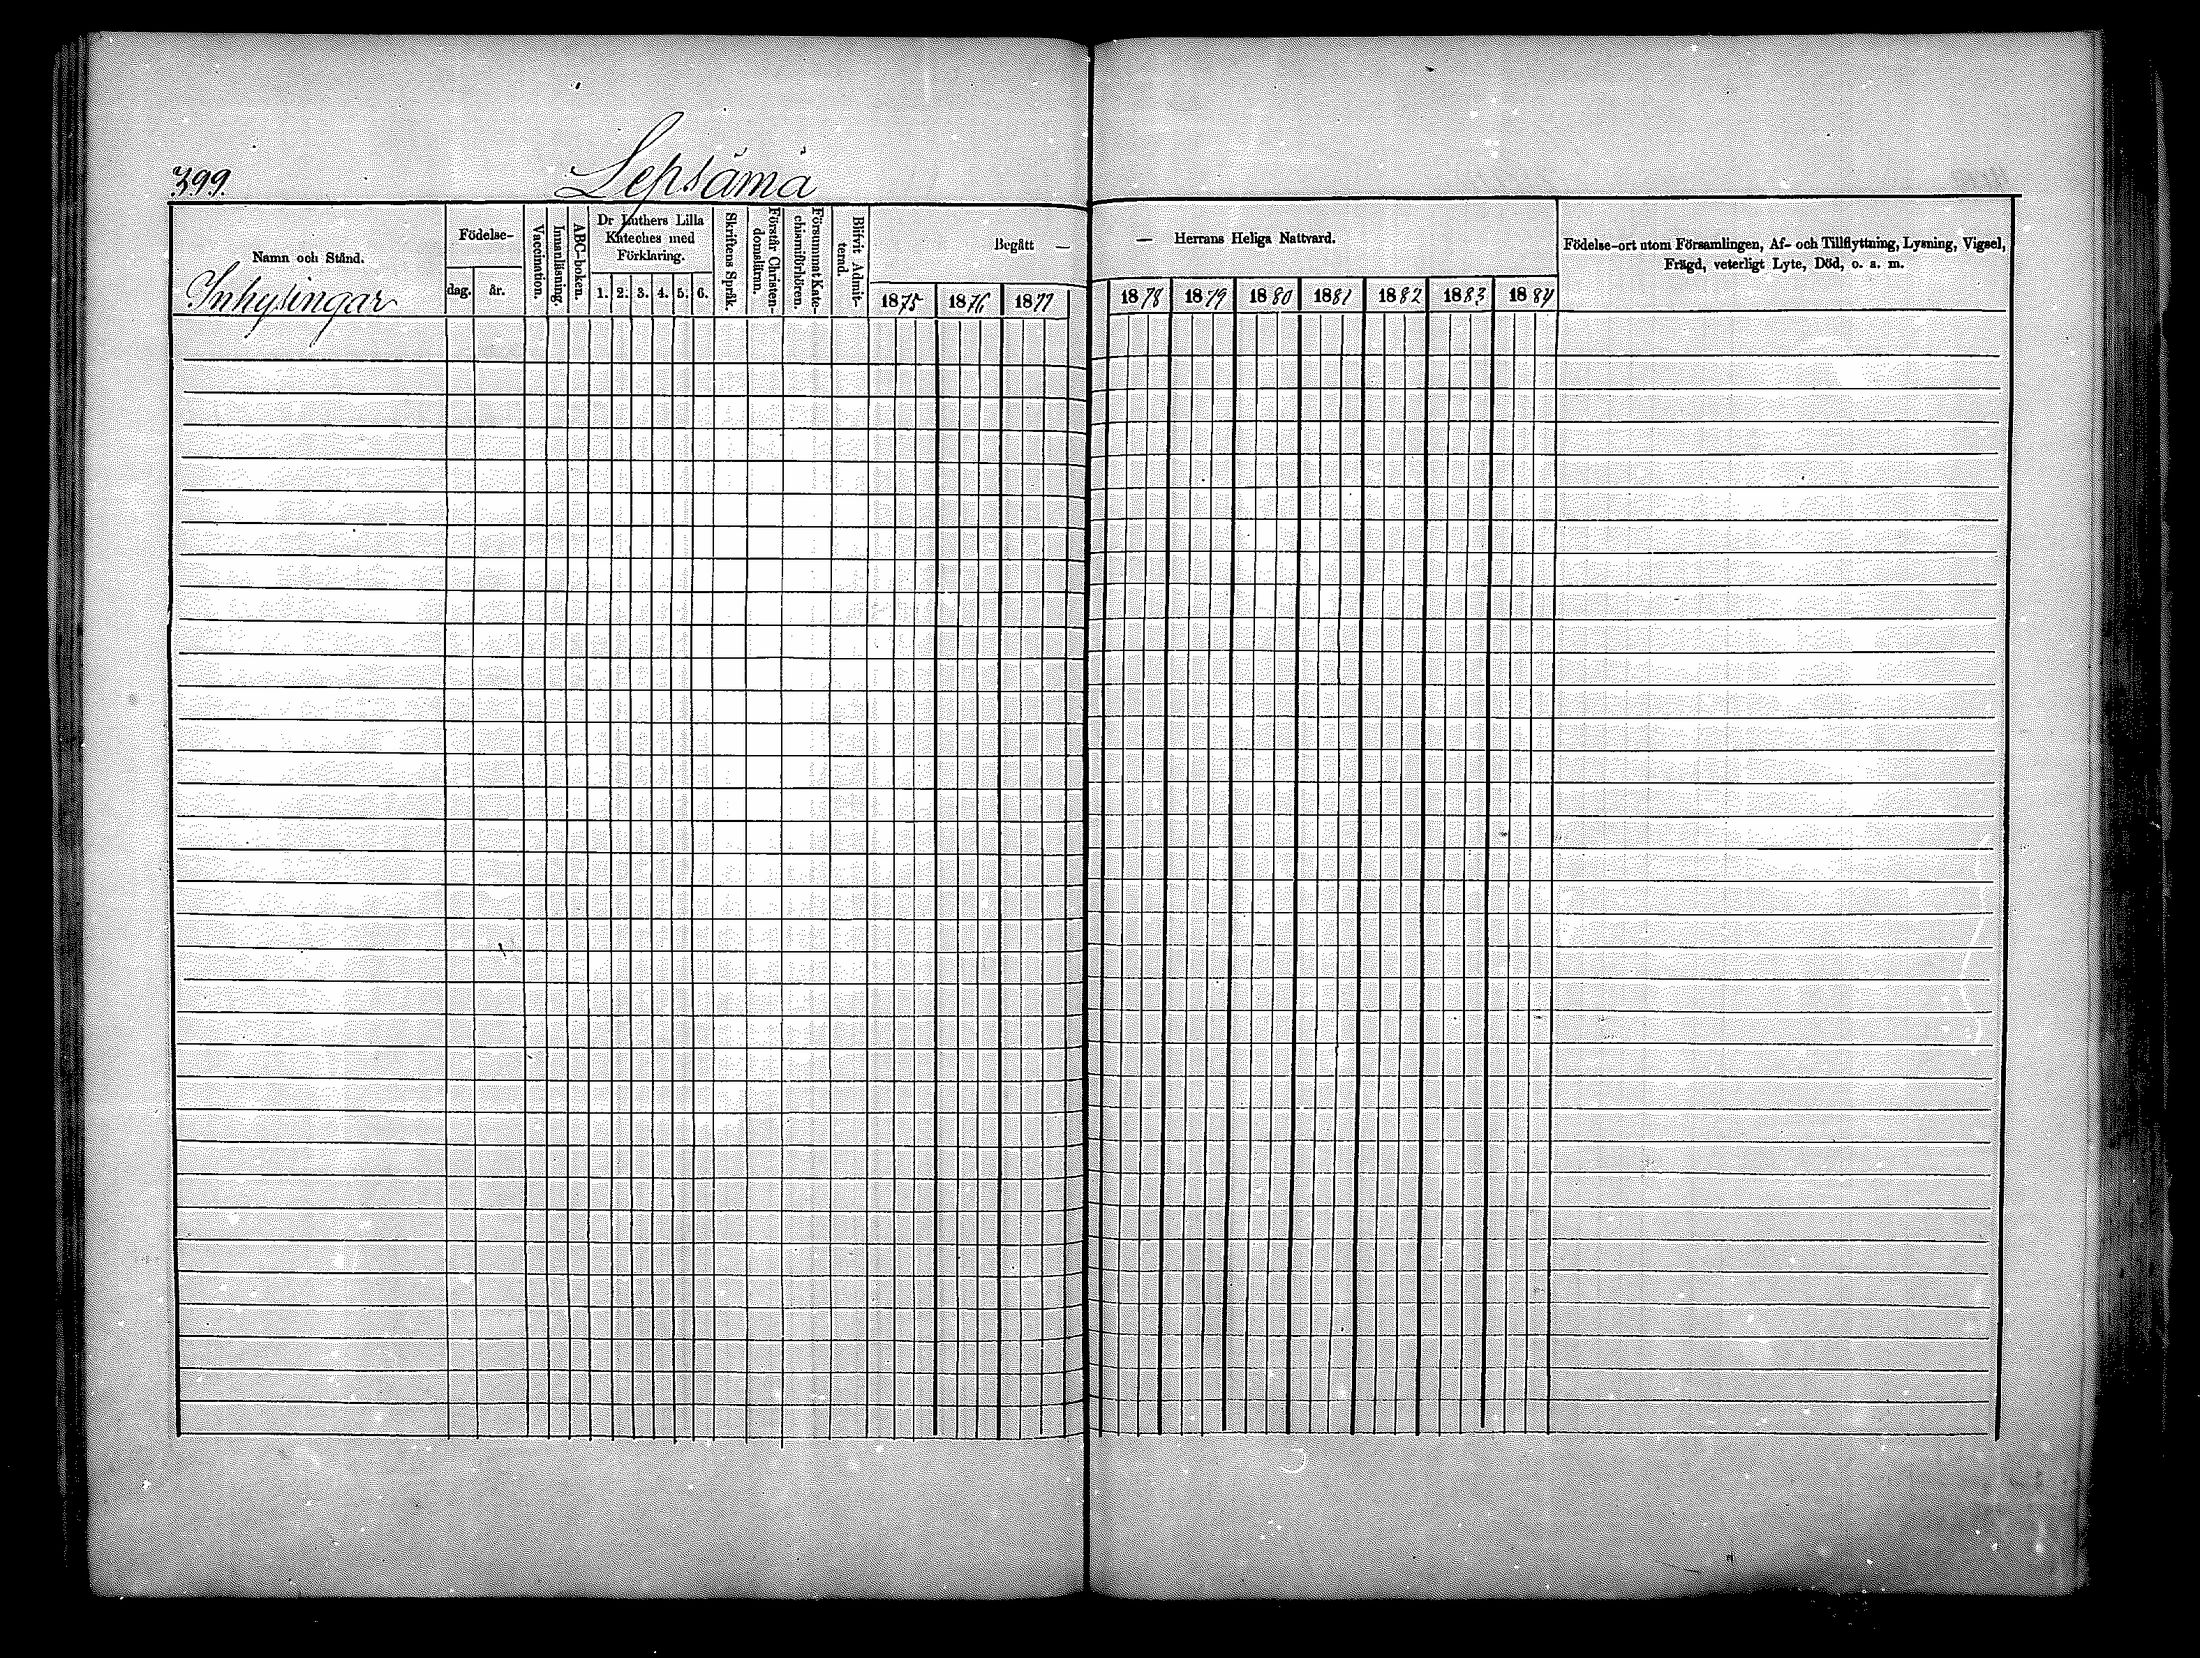 399.
Lepsämä
Namn och Stånd.
Inhysingar
Födelse-
dag.
år.
Vaccination.
Innanläsning.
ABC-boken.
Dr Luthers Lilla
Kateches med
Förklaring.
1. 2. 3. 4. 5. 6.
Skriftens Språk.
Förstår Christen-
domslärnn.
Försummat Kate-
chismiförhören.
Blifvit Admit-
terad.
Begått —
1875 1876 1877
— Herrans Heliga Nattvard.
1878 1879 1880 1881 1882 1883 1884
Födelse-ort utom Församlingen, Af- och Tillflyttning, Lysning, Vigsel,
Frägd, veterligt Lyte, Död, o. s. m.